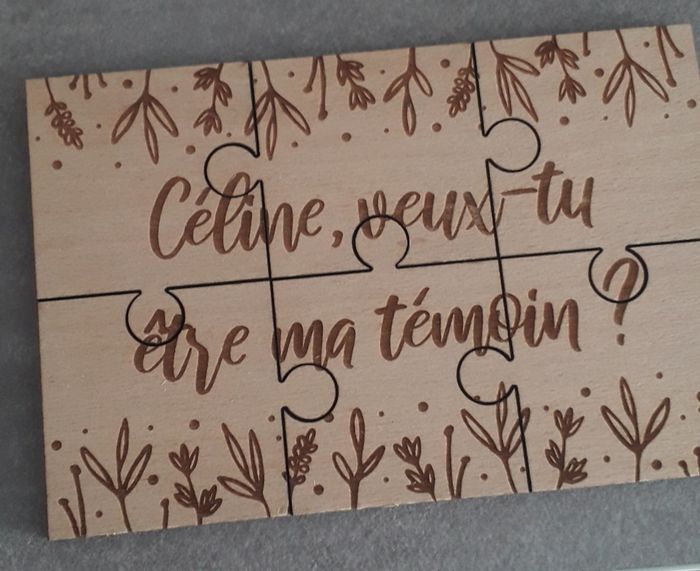 Céline, veux-tu
être ma témoin ?